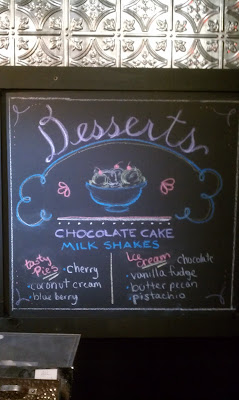 Desserts
CHOCOLATE CAKE
MILK SHAKES
Tasty Pies
• cherry
• coconut cream
• blueberry
Ice Cream
chocolate
• vanilla fudge
• butter pecan
• pistachio